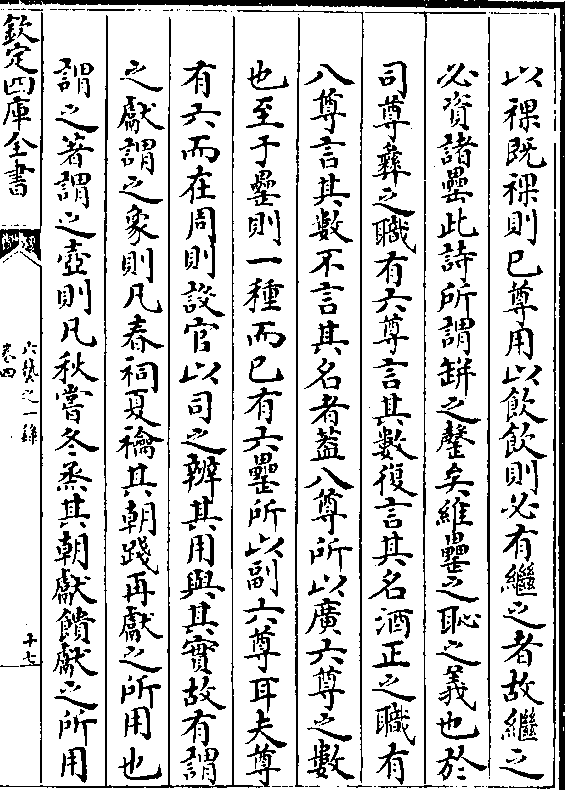 以祼既祼則已尊用以飲飲則必有繼之者故繼之
必資諸罍此詩所謂缾之罄矣維罍之恥之義也於
司尊彝之職有六尊言其數復言其名酒正之職有
八尊言其數不言其名者葢八尊所以廣六尊之數
也至于罍則一種而已有六罍所以副六尊耳夫尊
有六而在周則設官以司之辨其用與其實故有謂
之獻謂之象則凡春祠夏禴其朝踐再獻之所用也
謂之著謂之壺則凡秋嘗冬烝其朝獻饋獻之所用
欽定四庫全書
六藝之一錄
卷四
十七